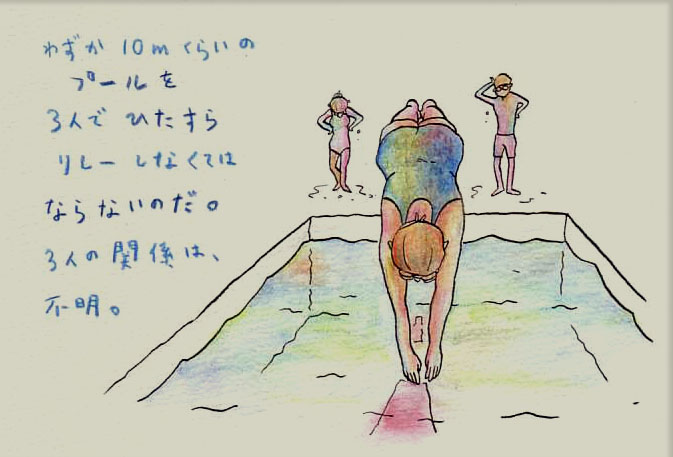 わずか 10m くらいの
プールを
3人で ひたすら
リレー しなくては
ならないのだ。
3人の関係は、
不明。